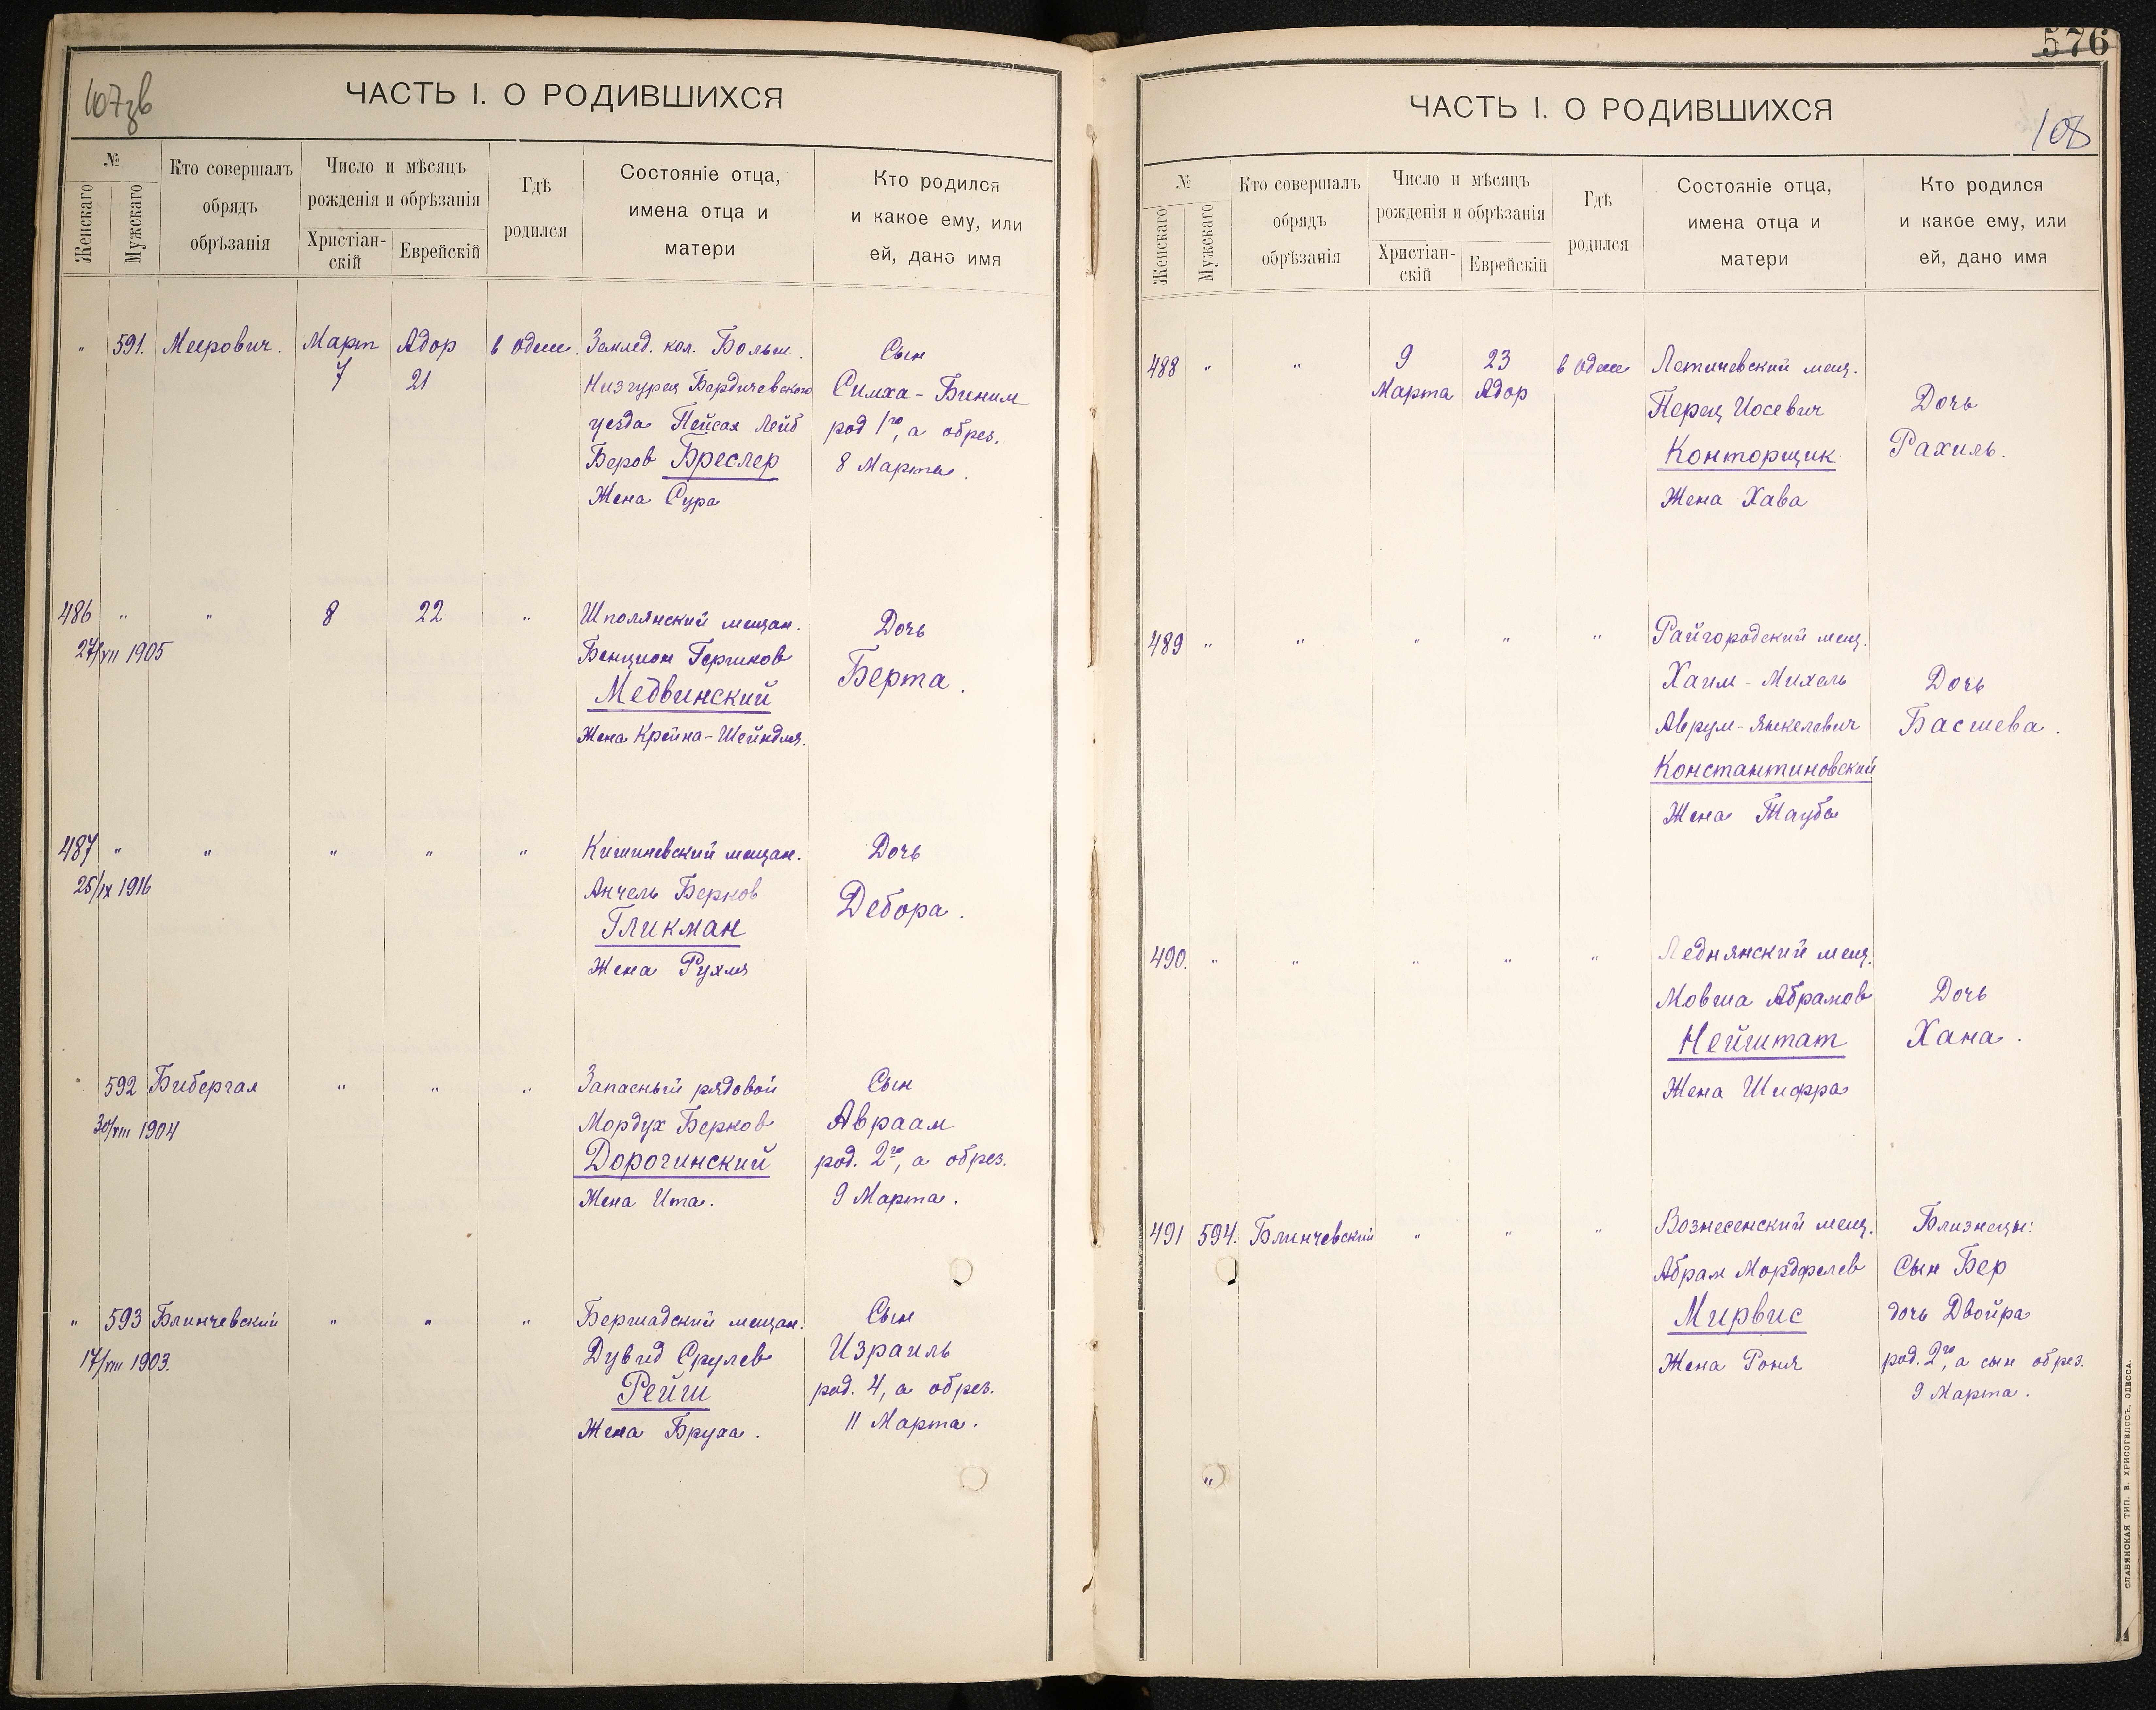 107зв
ЧАСТЬ I. О РОДИВШИХСЯ
№
Женскаго
Мужскаго
Кто совершалъ
обрядъ
обрѣзанія
Число и мѣсяцъ
рожденія и обрѣзанія
Христіан-
скій
Еврейскій
Гдѣ
родился
Состояніе отца,
имена отца и
матери
Кто родился
и какое ему, или
ей, дано имя
" 591. Меерович. Март Адор в Одессе. Землед. кол. Больш. Сын
7 21 Низгурец Бердичевского Симха-Биним
уезда Пейсах Лейб род 1го, а обрез.
Беров Бреслер 8 Марта.
Жена Сура
486 " " 8 22 " Шполянский мещан. Дочь
27/VII 1905 Бенцион Гершков Берта.
Медвинский
Жена Крейна-Шейндля.
487 " " " " " Кишиневский мещан. Дочь
25/IX 1916 Анчель Берков Дебора.
Гликман
Жена Рухля
592 Бибергал " " " Запасный рядовой Сын
30/VIII 1904 Мордух Берков Авраам
Дорогинский род. 2го, а обрез.
Жена Ита. 9 Марта.
" 593 Блинчевский " " " Бершадский мещан. Сын
17/VIII 1903. Дувид Срулев Израиль
Рейш род. 4, а обрез.
Жена Бруха. 11 Марта.
576
ЧАСТЬ I. О РОДИВШИХСЯ
108
№
Женскаго
Мужскаго
Кто совершалъ
обрядъ
обрѣзанія
Число и мѣсяцъ
рожденія и обрѣзанія
Христіан-
скій
Еврейскій
Гдѣ
родился
Состояніе отца,
имена отца и
матери
Кто родился
и какое ему, или
ей, дано имя
488 " " 9 23 в Одессе Летичевский мещ.
Марта Адор Перец Иосевич Дочь
Конторщик Рахиль.
Жена Хава
489 " " " " " Райгородский мещ.
Хаим-Михель Дочь
Аврум-Янкелевич Басшева.
Константиновский
Жена Тауба
490. " " " " " Леднянский мещ.
Мовша Абрамов Дочь
Нейштат Хана.
Жена Шифра
491 594. Блинчевский " " " Вознесенский мещ. Близнецы:
Абрам Мордфелев Сын Бер
Мирвис дочь Двойра
Жена Роня род. 2го, а сын обрез.
9 Марта.
"
СЛАВЯНСКАЯ ТИП. В. ХРИСОГЕЛОСЪ, ОДЕССА.